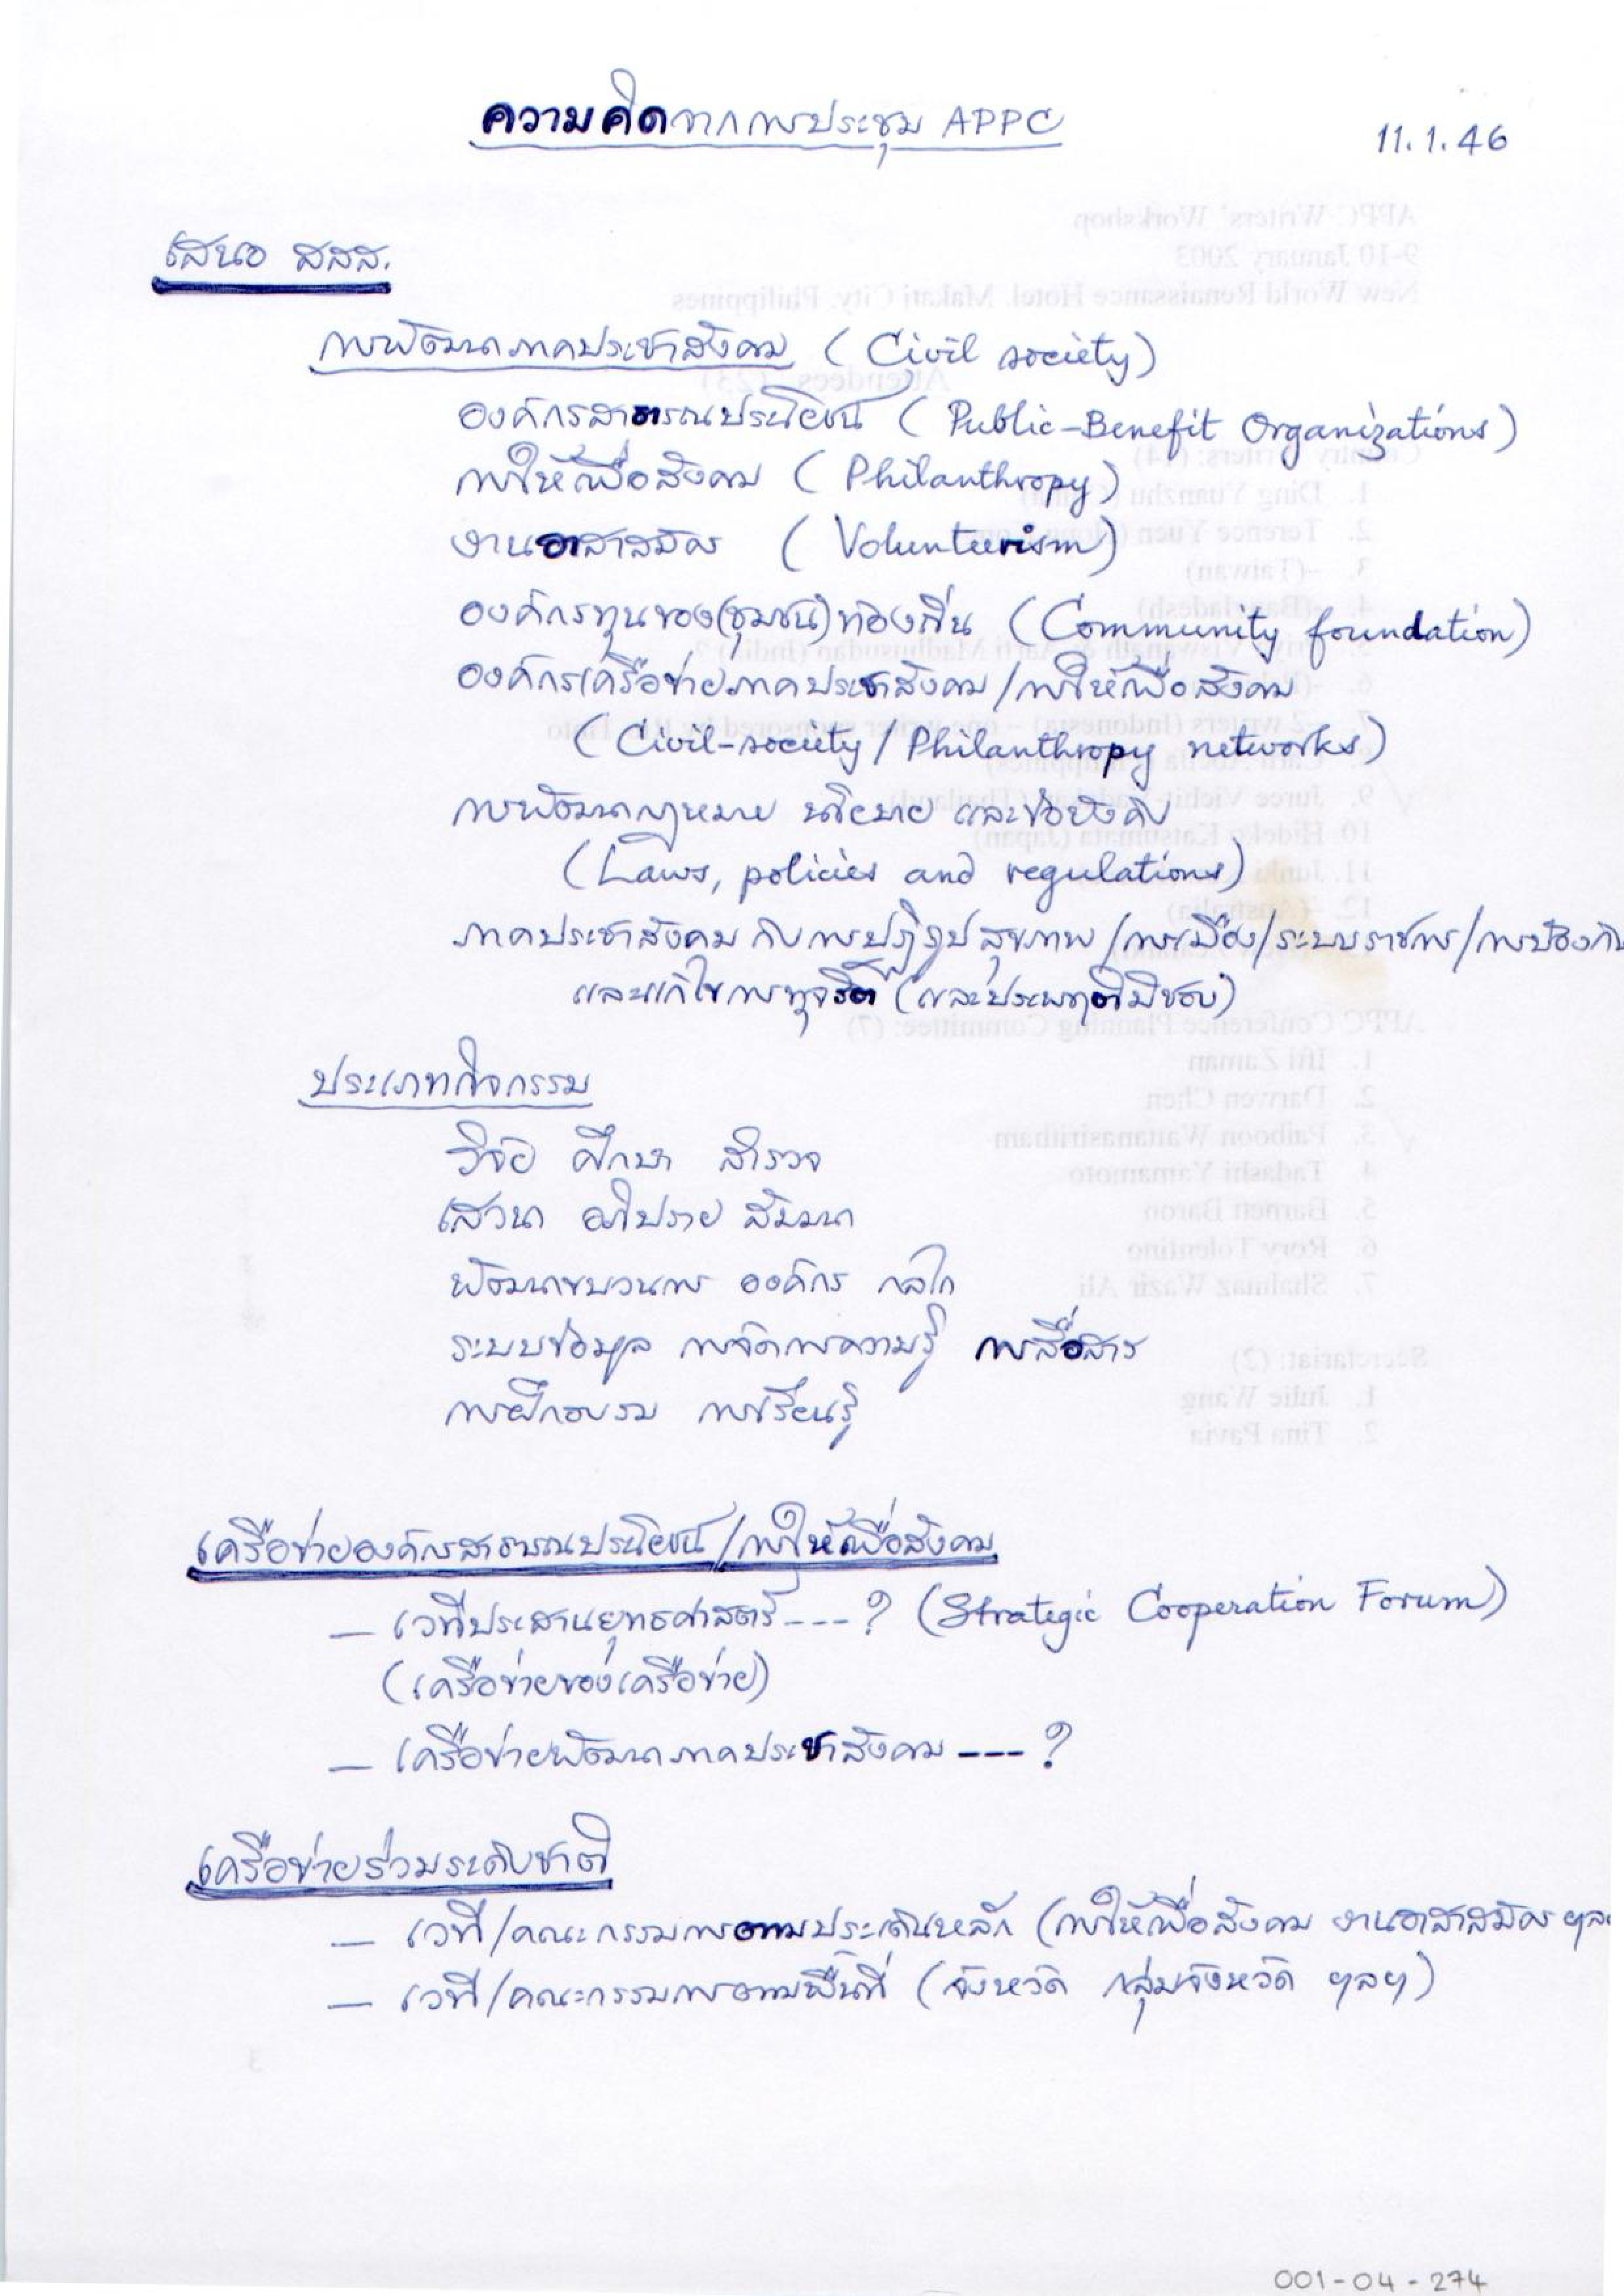 ความคิดจากการประชุม APPC
11.1.46
เสนอ สสส.
การพัฒนาภาคประชาสังคม (Civil society)
องค์กรสาธารณประโยชน์ (Public-Benefit Organizations)
การให้เพื่อสังคม (Philanthropy)
งานอาสาสมัคร (Volunteerism)
องค์กรทุนของ(ชุมชน)ท้องถิ่น (Community foundation)
องค์กรเครือข่ายภาคประชาสังคม/การให้เพื่อสังคม
(Civil-society/Philanthropy networks)
การพัฒนากฎหมาย นโยบาย และข้อบังคับ
(Laws, policies and regulations)
ภาคประชาสังคม กับการปฏิรูปสุขภาพ/การเมือง/ระบบราชการ/การป้องกัน
และแก้ไขการทุจริต (และประพฤติมิชอบ)
ประเภทกิจกรรม
วิจัย ศึกษา สำรวจ
เสวนา อภิปราย สัมมนา
พัฒนาขบวนการ องค์กร กลไก
ระบบข้อมูล การจัดการความรู้ การสื่อสาร
การฝึกอบรม การเรียนรู้
เครือข่ายองค์กรสาธารณประโยชน์/การให้เพื่อสังคม
— เวทีประสานยุทธศาสตร์ ---- ? (Strategic Cooperation Forum)
(เครือข่ายของเครือข่าย)
— เครือข่ายพัฒนาภาคประชาสังคม --- ?
เครือข่ายร่วมระดับชาติ
— เวที/คณะกรรมการตามประเด็นหลัก (การให้เพื่อสังคม งานอาสาสมัคร ฯล
— เวที/คณะกรรมการตามพื้นที่ (จังหวัด กลุ่มจังหวัด ฯลฯ)
001-04-274